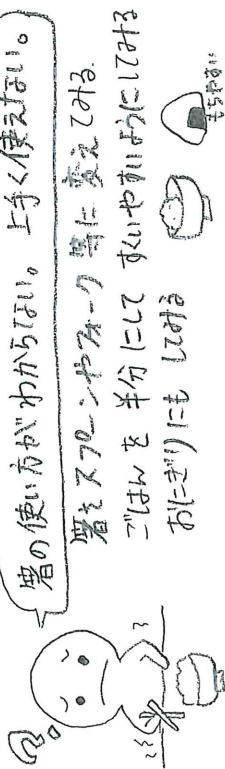 箸の使い方がわからない。上手く使えない。
箸をスプーンやフォーク等に変えてみる。
ごはんを半分にして すくいやすいようにしてみる
おにぎりにもしてみる
もちやすい
?